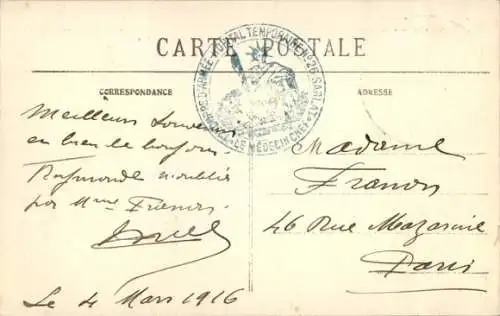 CARTE POSTALE
HÔPITAL TEMPORAIRE N° 26 SARLAT
LE MÉDECIN CHEF
CORRESPONDANCE
ADRESSE
Meilleurs Souvenirs
en bien le bonjour
Raymonde n'oublie
pas Mme Franon
Madame
Franon
46 Rue Mazarine
Paris
Le 4 Mars 1916